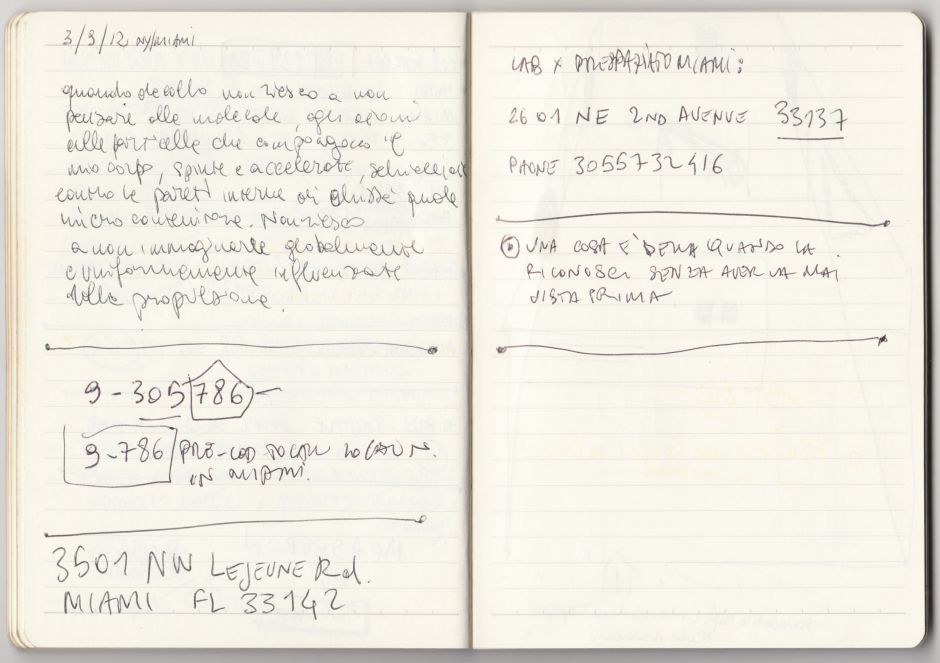 3/9/12 NY/MIAMI
quando decollo non riesco a non
pensare alle molecole, agli atomi
alle particelle che compongono il
mio corpo, spinte e accelerate,
contro le pareti interne di questo
micro contenitore. Non riesco
a non immaginarle globalmente
e uniformemente influenzate
dalla propulsione.
9-305 786 —
9-786 PRE-COD
IN MIAMI.
3501 NW LEJEUNE Rd.
MIAMI FL 33142
LAB X MIAMI:
2601 NE 2ND AVENUE 33137
PHONE 3055732416
UNA COSA E' BELLA QUANDO LA
RICONOSCI SENZA AVERLA MAI
VISTA PRIMA